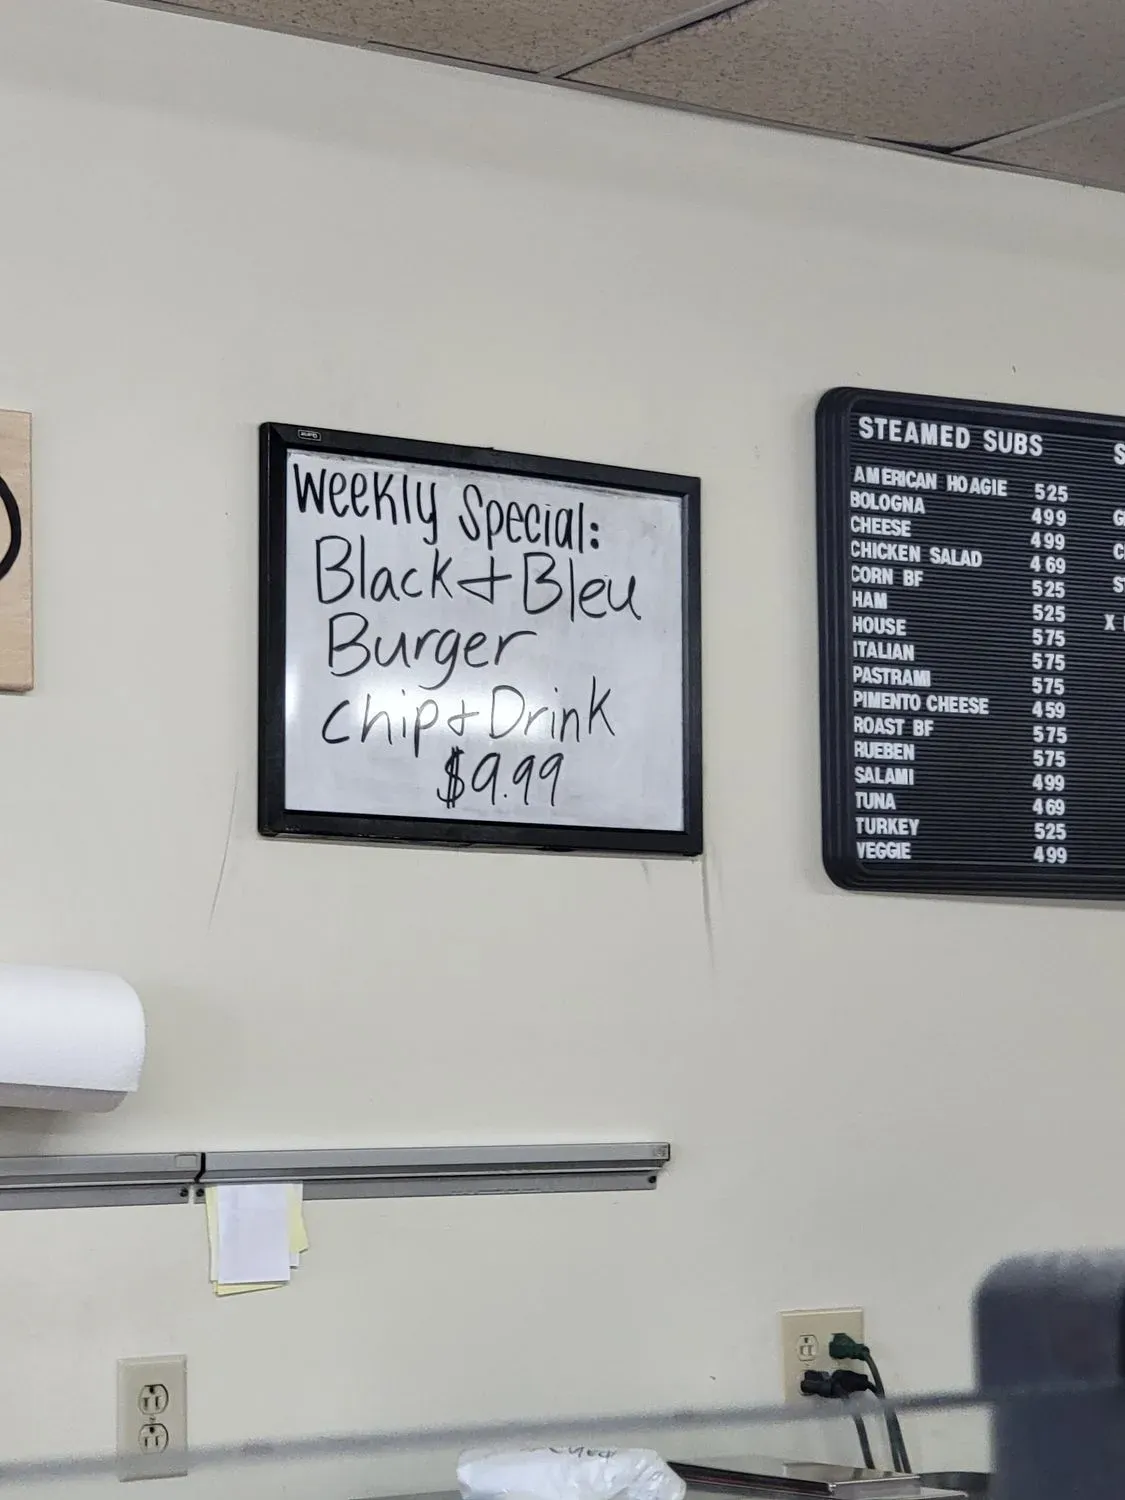 Weekly Special:
Black & Bleu
Burger
chip & Drink
$9.99
STEAMED SUBS
AMERICAN HOAGIE 525
BOLOGNA 499
CHEESE 499
CHICKEN SALAD 469
CORN BF 525
HAM 525
HOUSE 575
ITALIAN 575
PASTRAMI 575
PIMENTO CHEESE 459
ROAST BF 575
RUEBEN 575
SALAMI 499
TUNA 469
TURKEY 525
VEGGIE 499